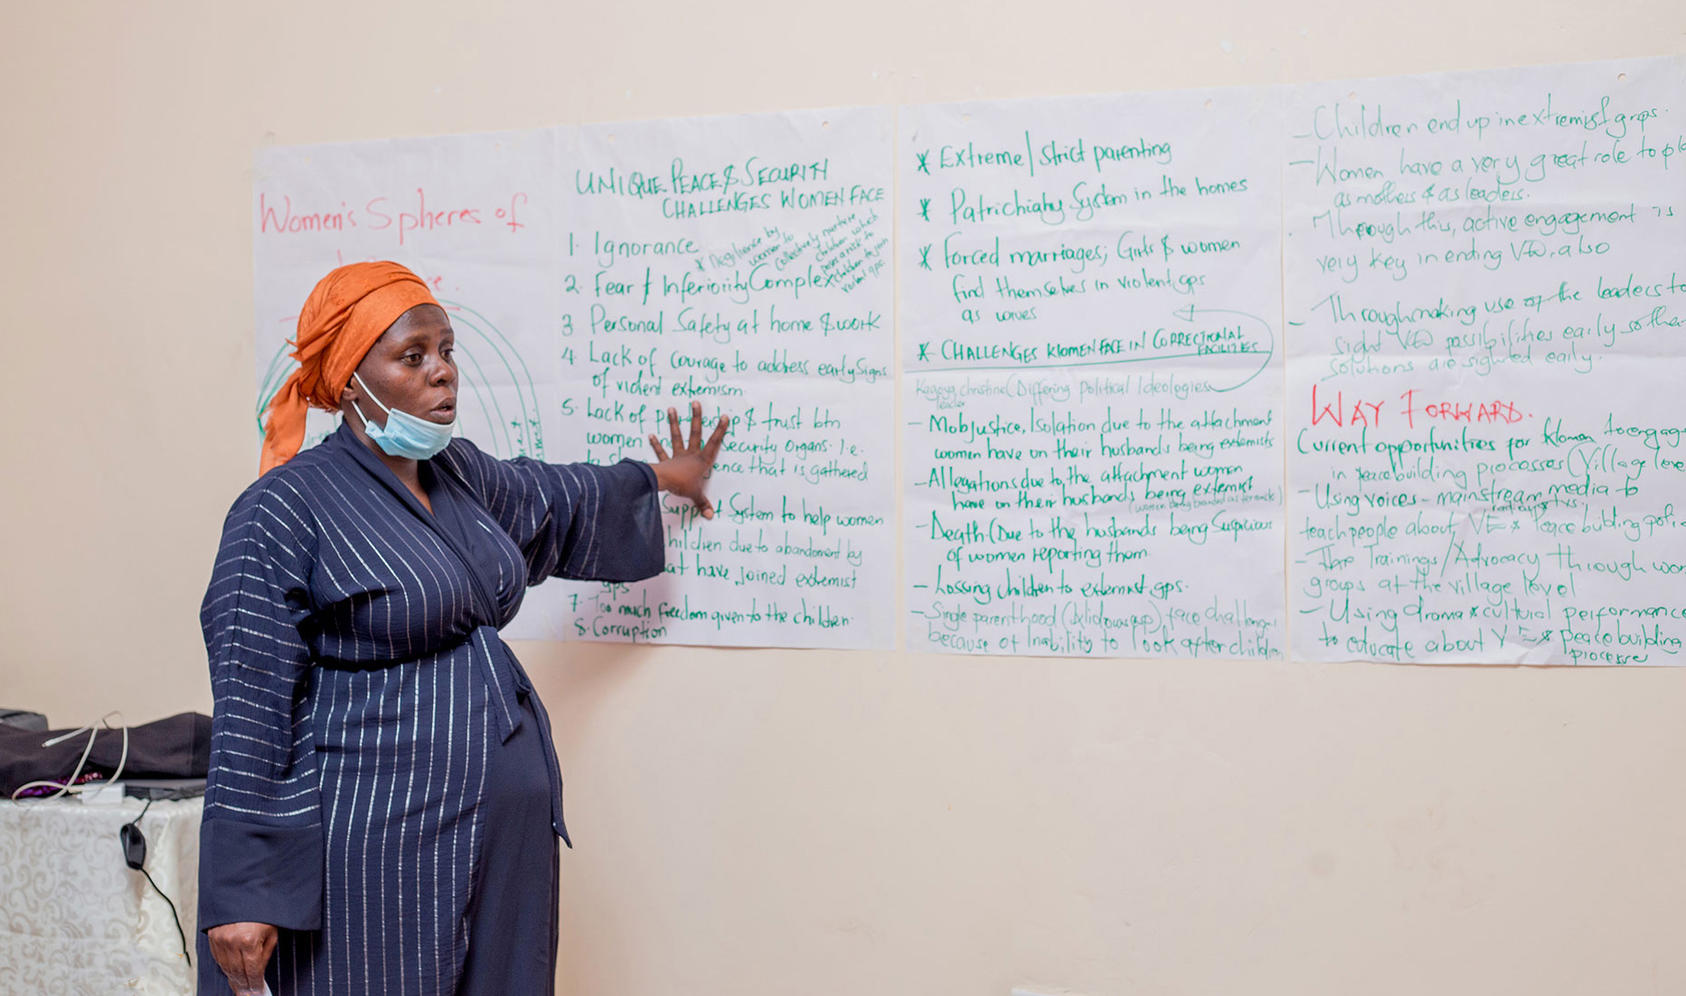 Women's Spheres of
UNIQUE PEACE & SECURITY
CHALLENGES WOMEN FACE
1. Ignorance
* Negiligence by
women to
collectively nurture
children which
poses a risk to
children to join
violent gps.
2. Fear & Inferiority Complex
3 Personal Safety at home & work
4. Lack of courage to address early Signs
of violent extremism.
5. Lack of & trust btn
women Security organs. i.e.
that is gathered
Support System to help women
children due to abandoment by
that have joined extremist
gps
7. Too much freedom given to the children.
8. Corruption
* Extreme/strict parenting
* Patrichiahy System in the homes
* Forced marriages; Girls & women
find themselves in violent gps
as wives
* CHALLENGES WOMEN FACE IN CORRECTIONAL
FACILITIES
(Differing Political Ideologies
leader
- Mobjustice, Isolation due to the attachment
women have on their husbands being extemists
- Allegations due to the attachment women
have on their husbands being extemist
(women being branded as terrorists)
- Death (Due to the husbands being Suspicious
of women reporting them
- Lossing children to extemist gps.
- Single parenthood face challenges
because of Inability to look after children
- Children end up in extremist grps.
- Women have a very great role to
as mothers & as leaders.
- Through this, active engagement is
very key in ending VE, also
- Through making use of the leaders to
sight VE possibilities early so that
solutions are sighted early.
WAY FORWARD.
Current opportunities for Women to engage
in peace building processes (Village level
- Using voices - mainstream media to
radios, tvs.
teach people about VE & Peace building
- Trainings/Advocacy through
groups at the village level
- Using drama & cultural performance
to educate about VE & peacebuilding
processe